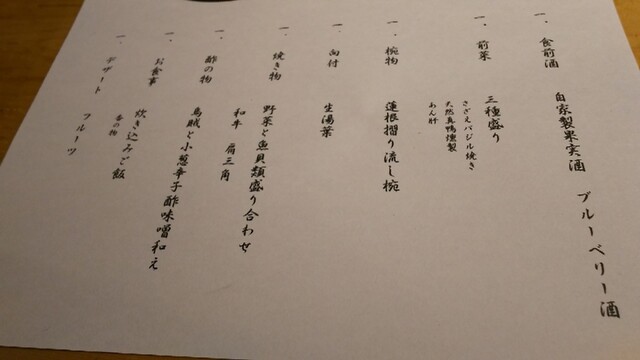 一、食前酒　自家製果実酒　ブルーベリー酒
一、前菜　三種盛り
さざえバジル焼き
天然真鴨燻製
あん肝
一、椀物　蓮根摺り流し椀
一、向付　生湯葉
一、焼き物　野菜と魚貝類盛り合わせ
和牛　肩三角
一、酢の物　烏賊と小葱辛子酢味噌和え
一、お食事　炊き込みご飯
香の物
一、デザート　フルーツ